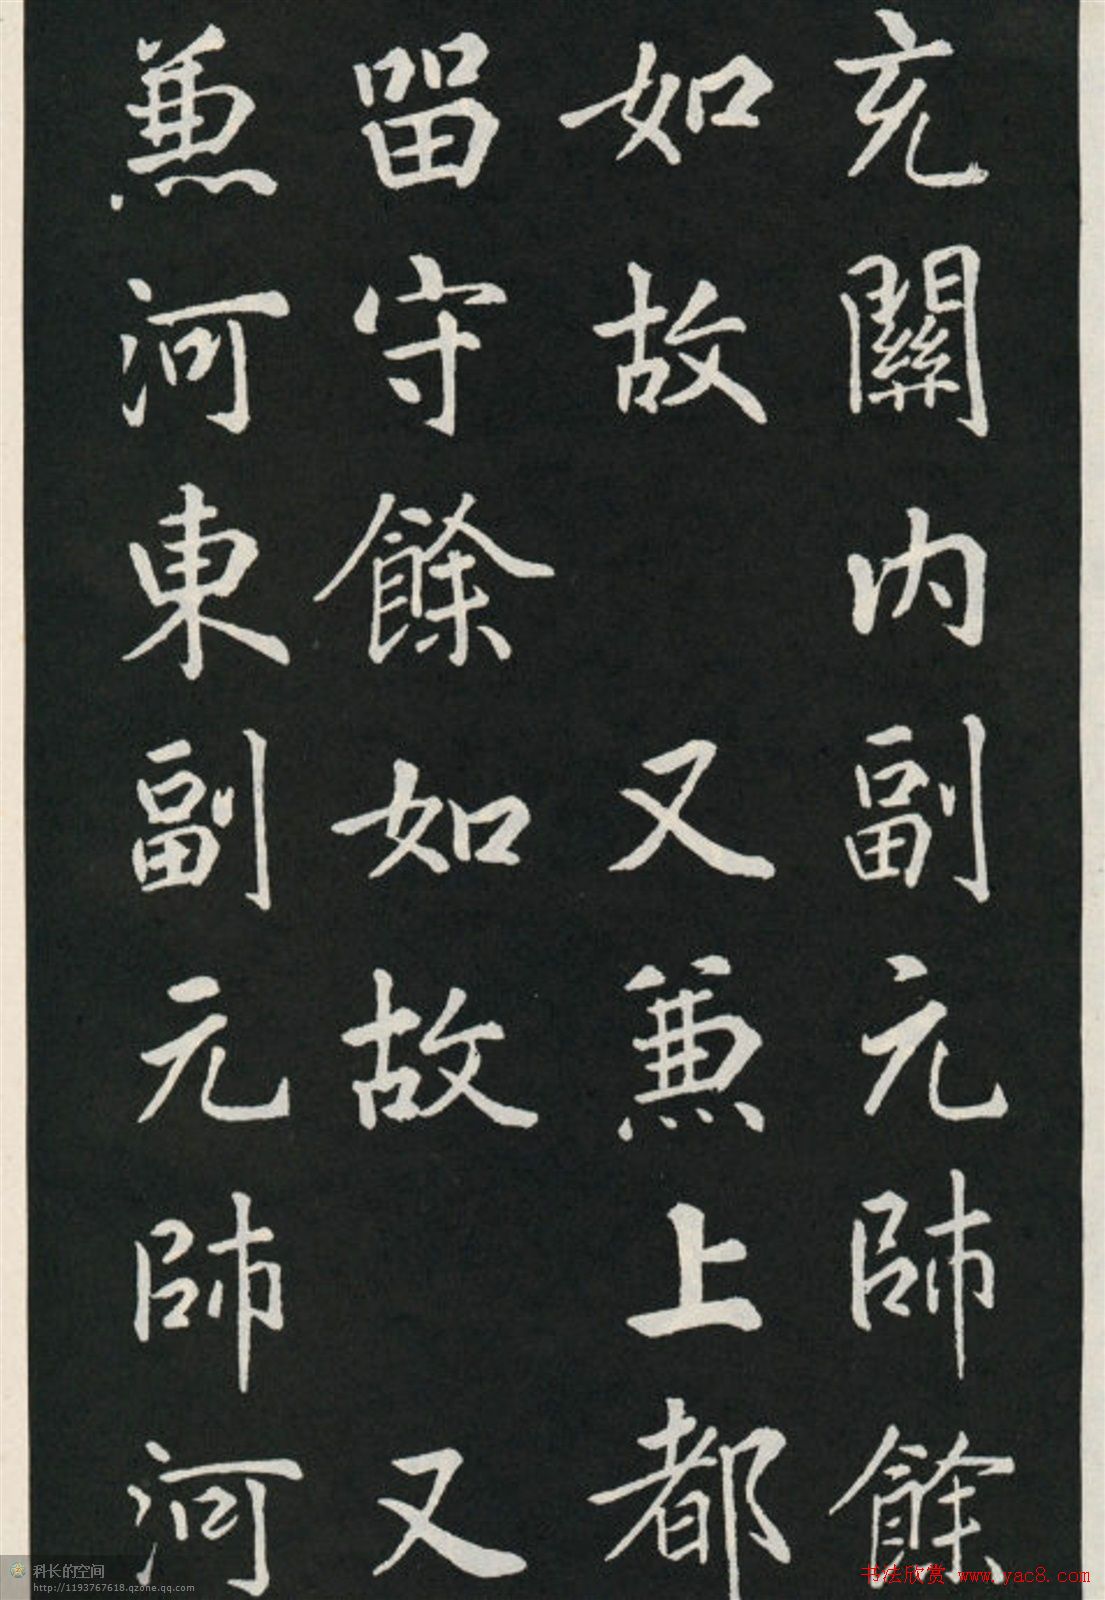 充關內副元帥餘
如故 又兼上都
留守餘如故 又
兼河東副元帥河
科长的空间
http://1193767618.qzone.qq.com
书法欣赏 www.yac8.com